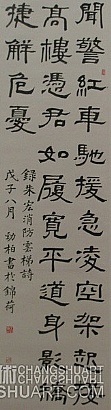 聞警紅車馳援急凌空架設
高樓憑君如履寬平道身影矯
捷解危憂
錄朱宏消防雲梯詩
戊子八月 勁柏書於錦荷